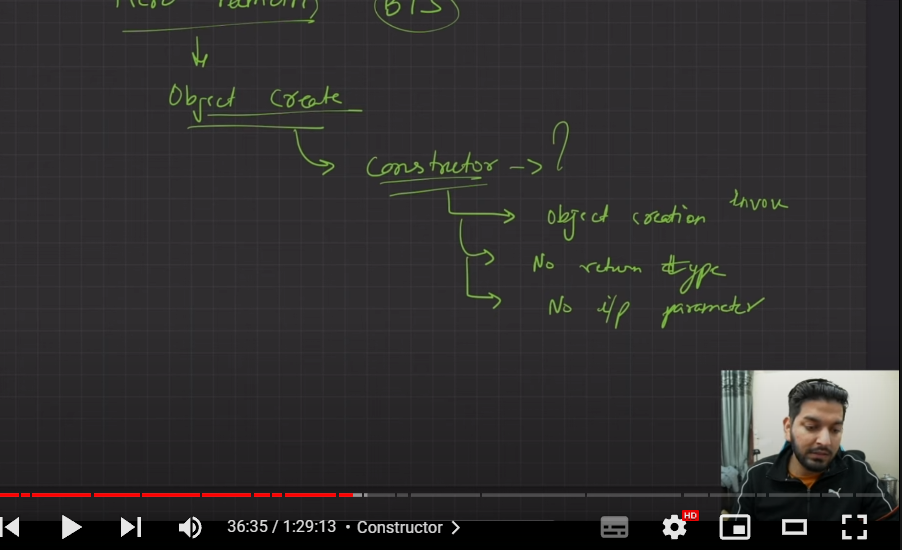 BTS
Object Create
Constructor -> ?
Object creation invou
No return type
No i/p parameter
HD
36:35 / 1:29:13 • Constructor >